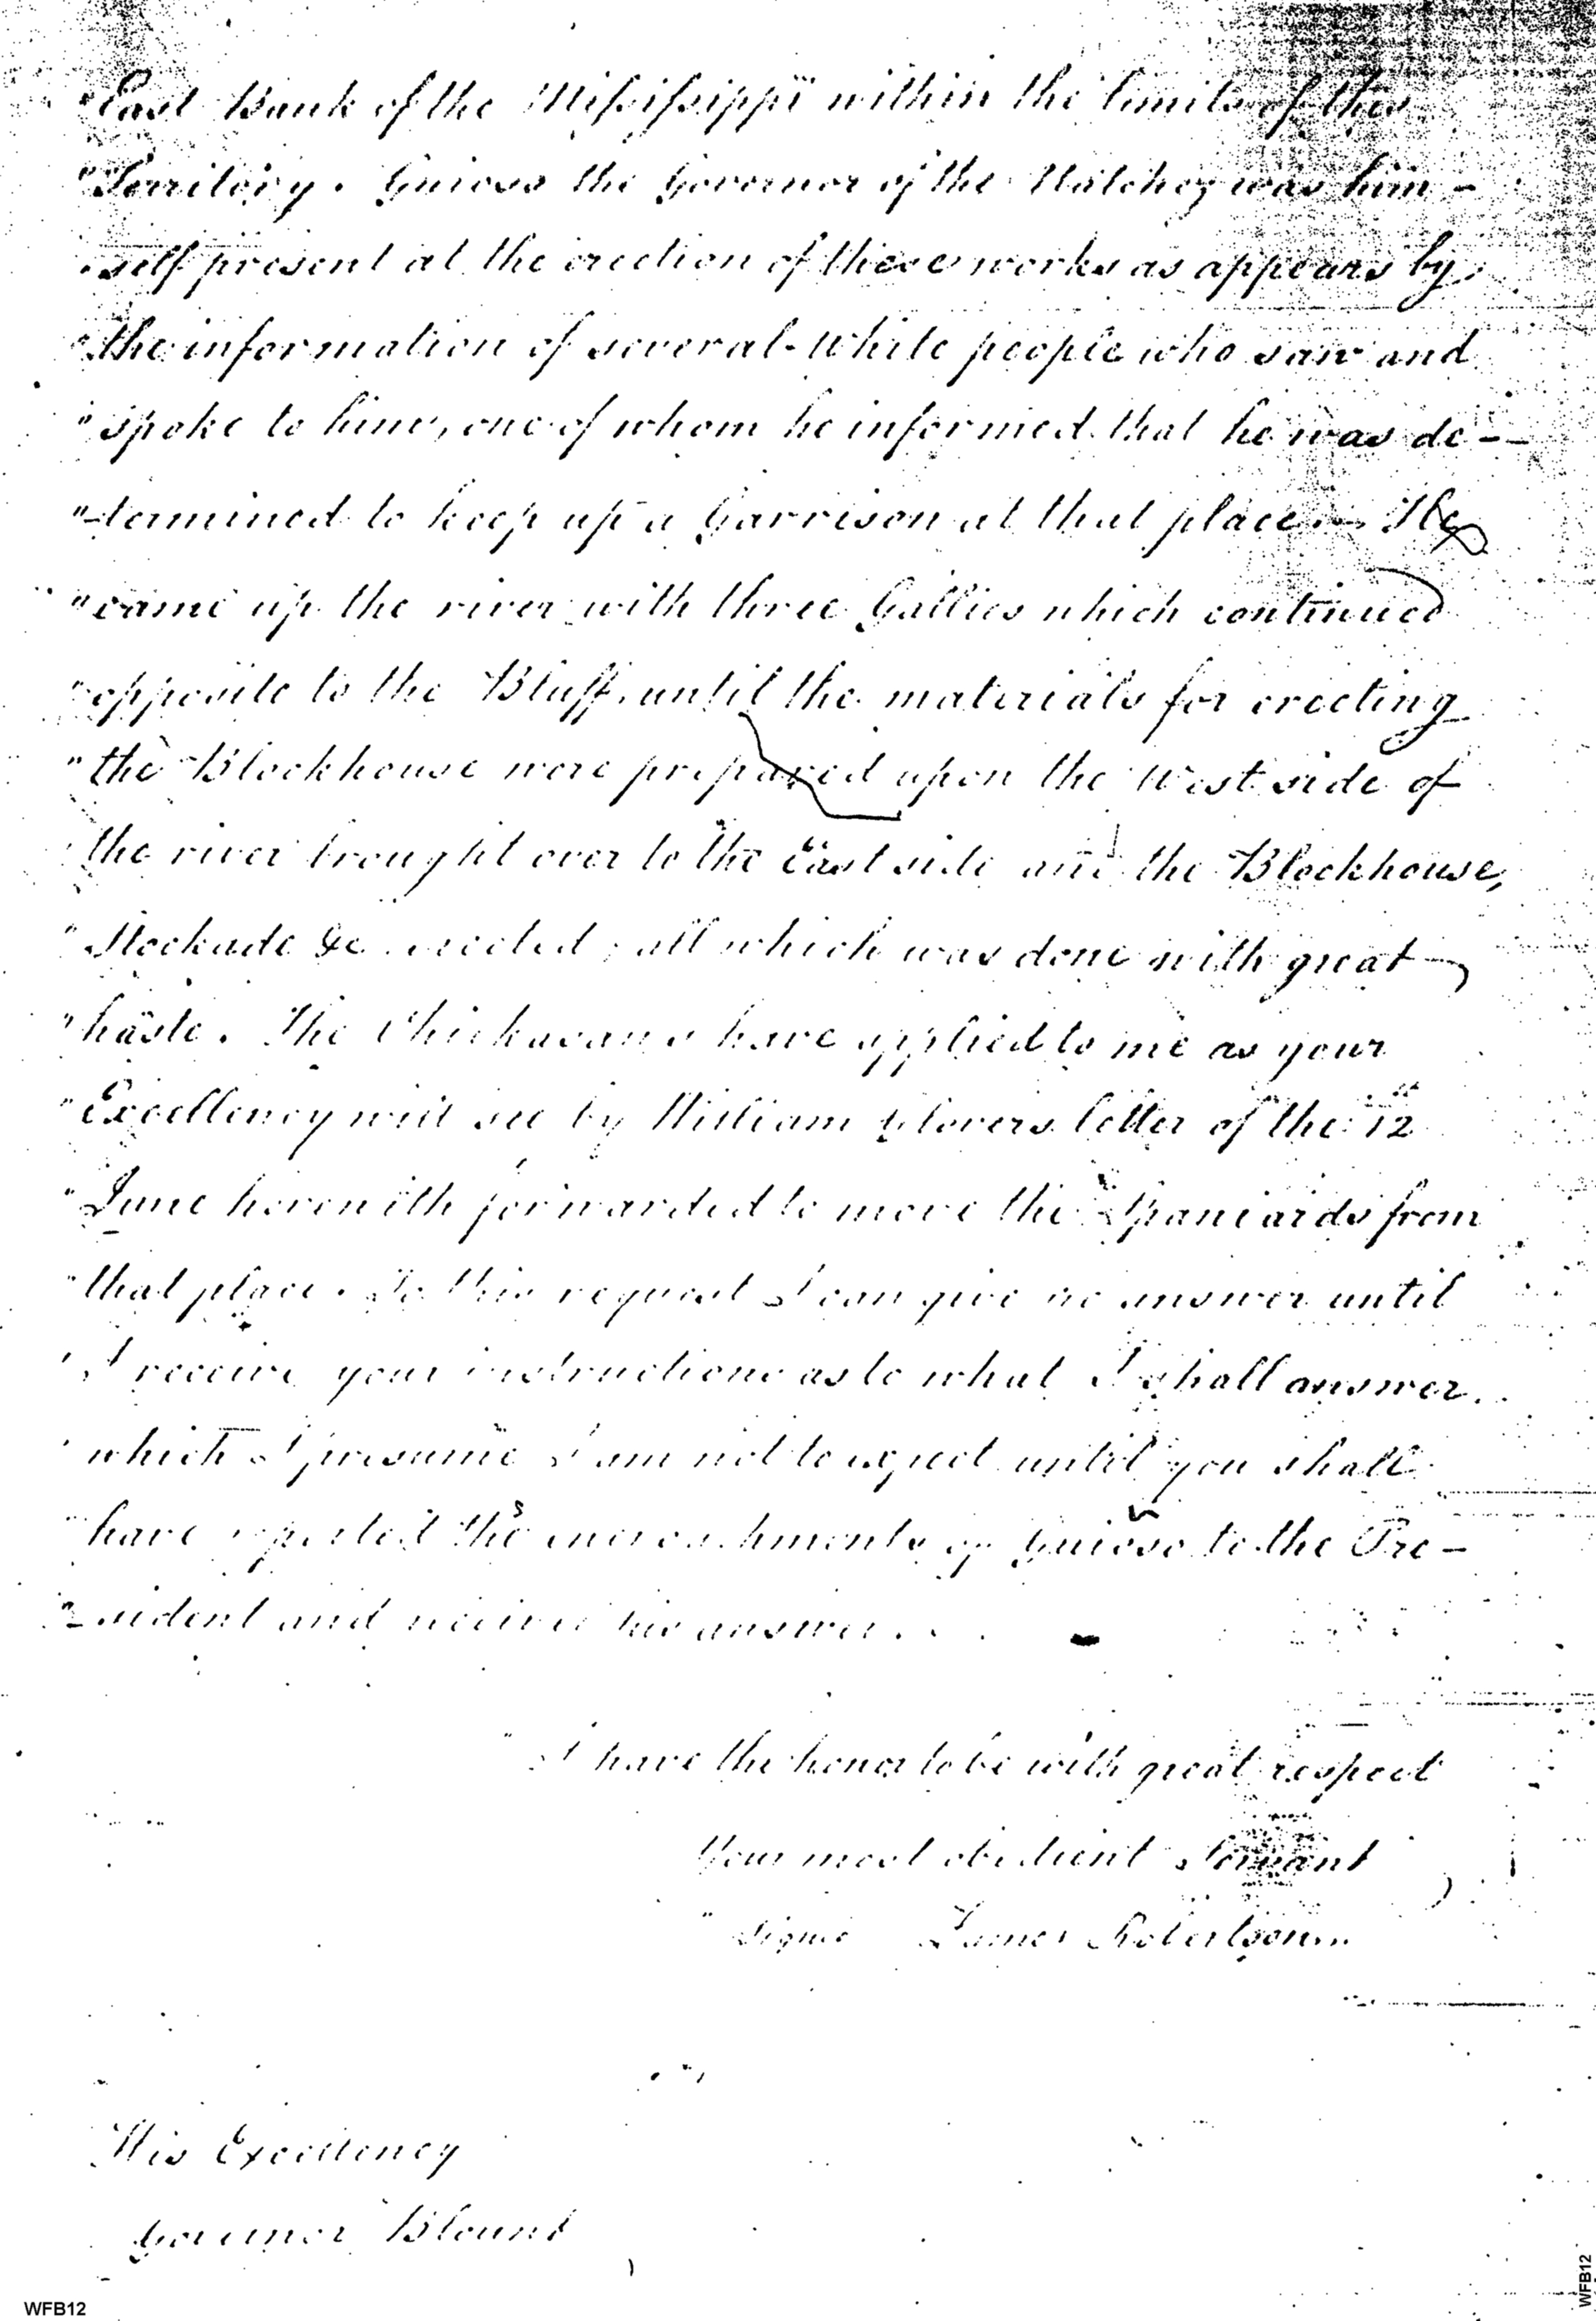 "East Bank of the Mississippi within the limits of this
"Territory. Guioso the Governor of the Natchez was him-
"self present at the erection of these works as appears by
"the information of several white people who saw and
"spoke to him, one of whom he informed that he was de-
"-termined to keep up a Garrison at that place. He
"came up the river with three Gallies which continued
"opposite to the Bluff, until the materials for erecting
"the Blockhouse were prepared upon the West side of
"the river brought over to the East side and the Blockhouse,
"Stockade &c erected; all which was done with great
"haste. The Chickasaws have applied to me as your
"Excellency will see by William Glovers letter of the 12
"June herewith forwarded to move the Spaniards from
"that place. To this request I can give no answer until
"I receive your instructions as to what I shall answer.
"which I presume I am not to expect until you shall
"have reported the encroachments of Guioso to the Pre-
"-sident and receive his answer.
"I have the honor to be with great respect
Your most obedient Servant
"signed James Robertson
His Excellency
Governor Blount
WFB12
WFB12